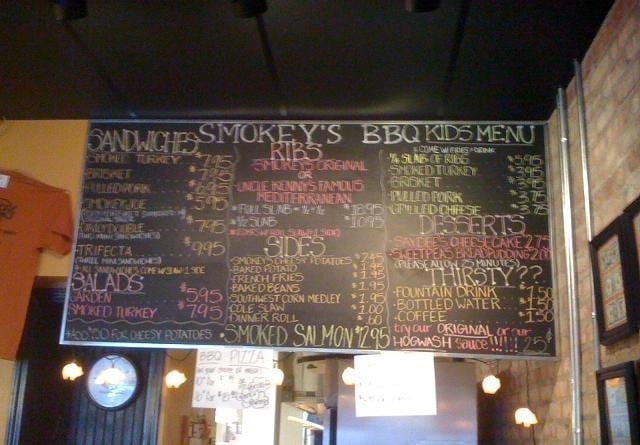 SMOKEY'S BBQ
SANDWICHES
SMOKED TURKEY 7.95
BRISKET 7.95
PULLED PORK 6.95
SMOKEY JOE 5.95
DOUBLE 7.95
TRIFECTA 9.95
(THREE MINI SANDWICHES)
*ALL SANDWICHES COME W/SLAW & 1 SIDE
SALADS
GARDEN $5.95
SMOKED TURKEY $7.95
*ADD .50 FOR CHEESY POTATOES
RIBS
SMOKEY'S ORIGINAL
OR
UNCLE KENNY'S FAMOUS
MEDITERRANEAN
*FULL SLAB 18.95
*½ SLAB 10.95
SIDES
SMOKEY'S CHEESY POTATOES
BAKED POTATO
FRENCH FRIES
BAKED BEANS 1.95
SOUTHWEST CORN MEDLEY 1.95
COLE SLAW 1.00
DINNER ROLL
SMOKED SALMON $12.95
KIDS MENU
*COME W/FRIES & DRINK
¼ SLAB OF RIBS $5.95
SMOKED TURKEY $3.95
BRISKET $3.95
PULLED PORK $3.75
GRILLED CHEESE $3.75
DESSERTS
CHEESECAKE 2.75
SWEETPEA'S BREAD PUDDING 2.00
(PLEASE ALLOW 25 MINUTES)
THIRSTY??
FOUNTAIN DRINK $1.50
BOTTLED WATER $1.50
COFFEE $1.50
try our ORIGINAL or our
HOGWASH sauce!!!!! .25¢
BBQ PIZZA